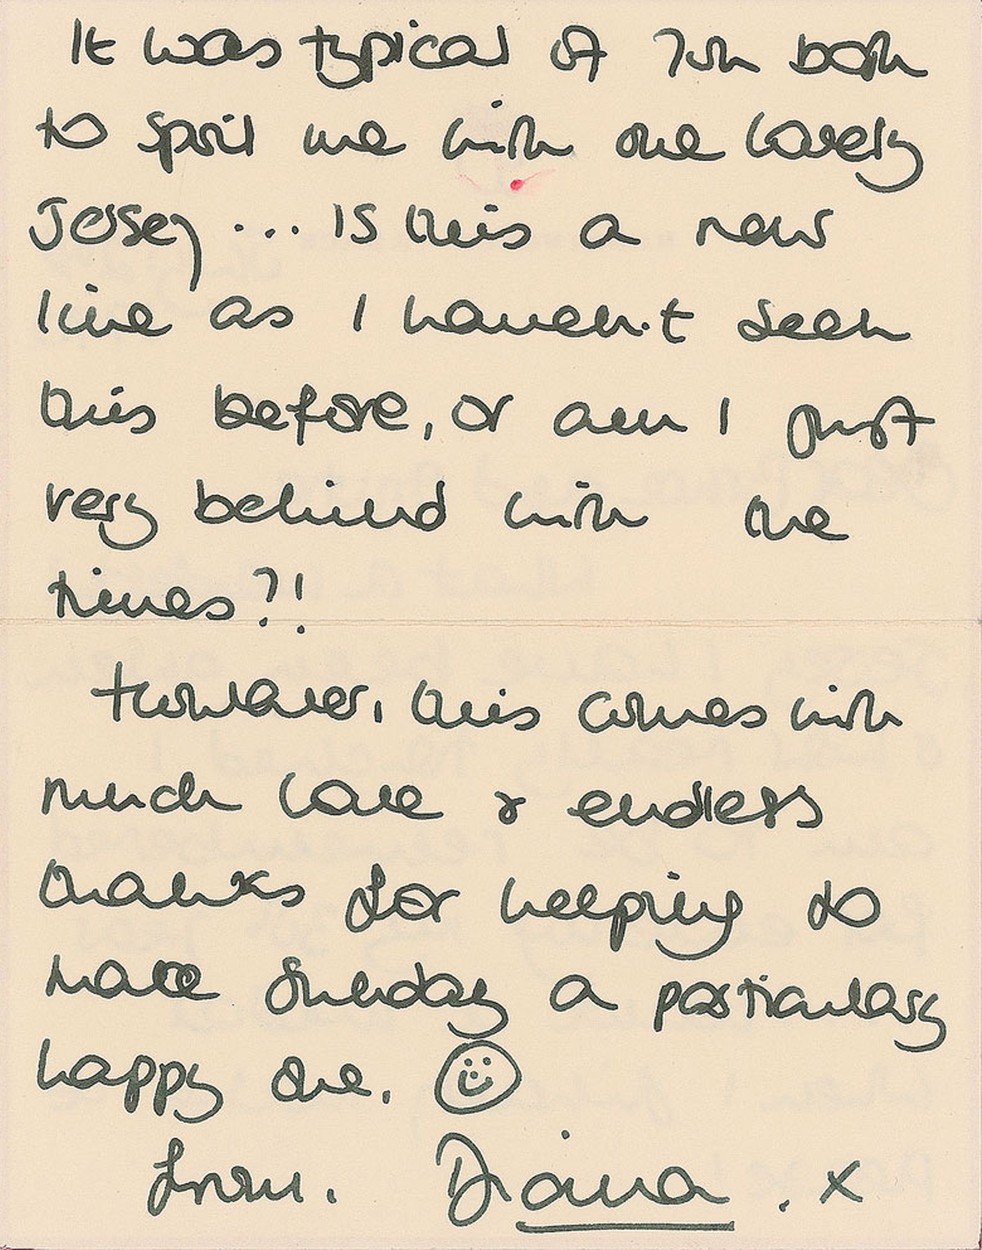 It was typical of you both
to spoil me with the lovely
Jersey .... Is this a new
line as I haven't seen
this before, or am I just
very behind with the
times?!
However, this comes with
much love & endless
thanks for helping to
make Sunday a particularly
happy one. ☺
from. Diana . x